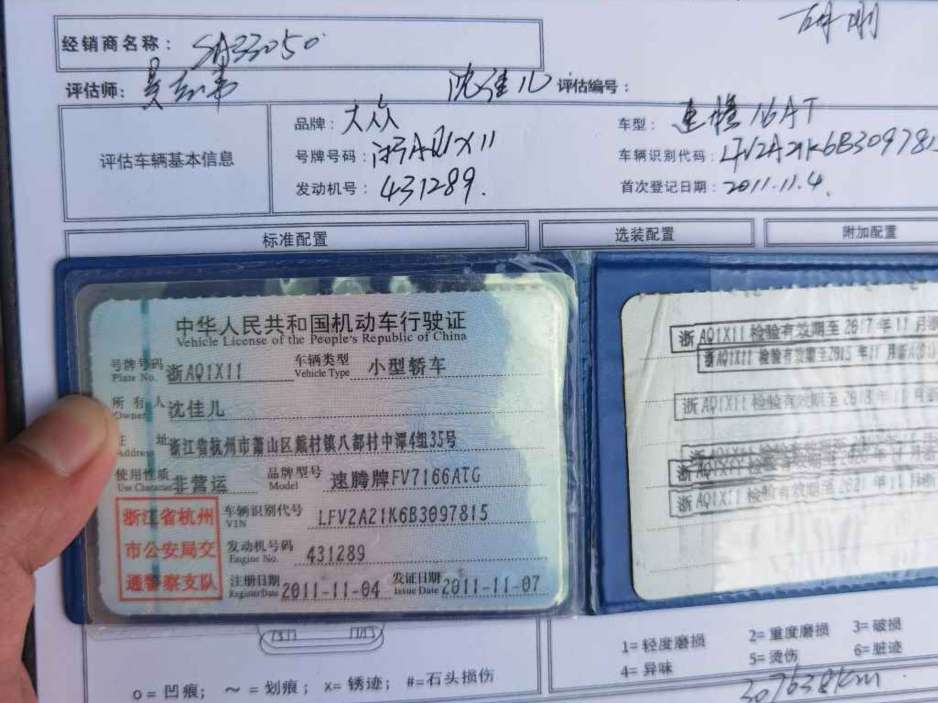 胡刚
经销商名称: SA33050
评估师: 沈佳儿 评估编号:
评估车辆基本信息
品牌: 大众 车型: 速腾16AT
号牌号码: 浙AQ1X11 车辆识别代码: LFV2A21K6B3097815
发动机号: 431289. 首次登记日期: 2011.11.4.
标准配置 选装配置 附加配置
中华人民共和国机动车行驶证
Vehicle License of the People's Republic of China
号牌号码 浙AQ1X11 车辆类型 小型轿车
Plate No. Vehicle Type
所有人 沈佳儿
Owner
住址 浙江省杭州市萧山区戴村镇八都村中潭4组35号
Address
使用性质 非营运 品牌型号 速腾牌FV7166ATG
Use Character Model
浙江省杭州
市公安局交
通警察支队
车辆识别代号 LFV2A21K6B3097815
VIN
发动机号码 431289
Engine No.
注册日期 2011-11-04 发证日期 2011-11-07
Register Date Issue Date
浙AQ1X11 检验有效期至2017年11月
浙AQ1X11 检验有效期至2015年11月
浙AQ1X11 检验有效期至2018年11月
浙AQ1X11 检验有效期至2021年11月
1=轻度磨损 2=重度磨损 3=破损
4=异味 5=烫伤 6=脏迹
o=凹痕; ~=划痕; x=锈迹; #=石头损伤
307638km